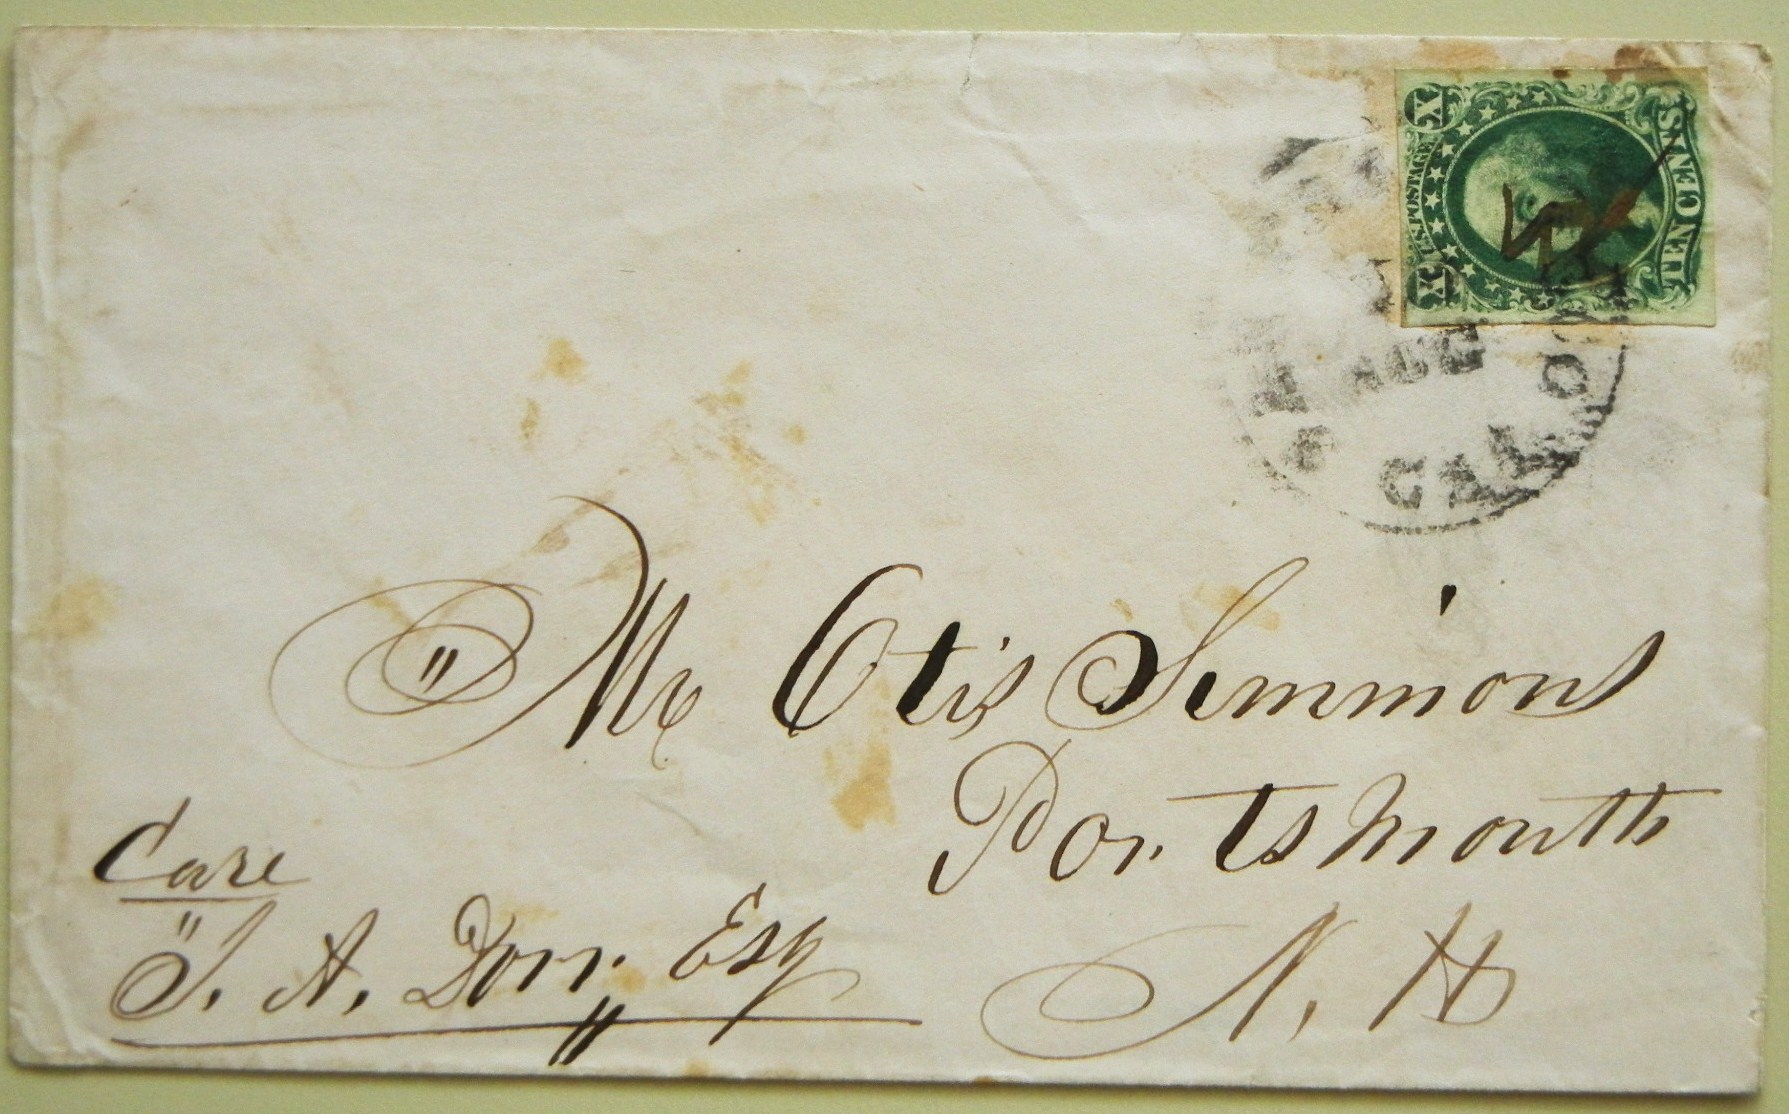 X U.S. POSTAGE X
TEN CENTS
CAL
" Mr Otis Simmons
Portsmouth
N. H
Care
" J. A. Dorr. Esq
"